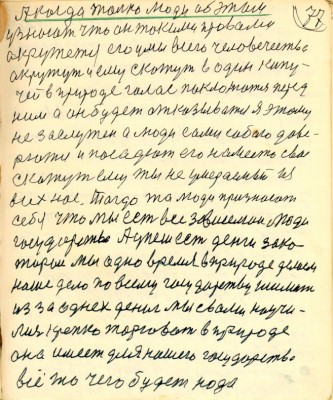 А когда только люди об этом
узнают что он такими правами
окружется его имя всего человечества
окружут и ему скажут в один
в природе голас поклонюся перед
ним а он будет отказыватся я этому
не заслужен а люди сами собою
и посадют его на место свое
скажут ему ты не умераемый из
всех нас. Тагда та люди признают
себя что мы есть все зависемаи люди
государства А у меня есть денги
мы одно время в природе делаем
наше дело по всему государству
из за однех денег мы с вами научи-
лись крепко торговат в природе
она имеет для нашего государства
всё то чего будет нада